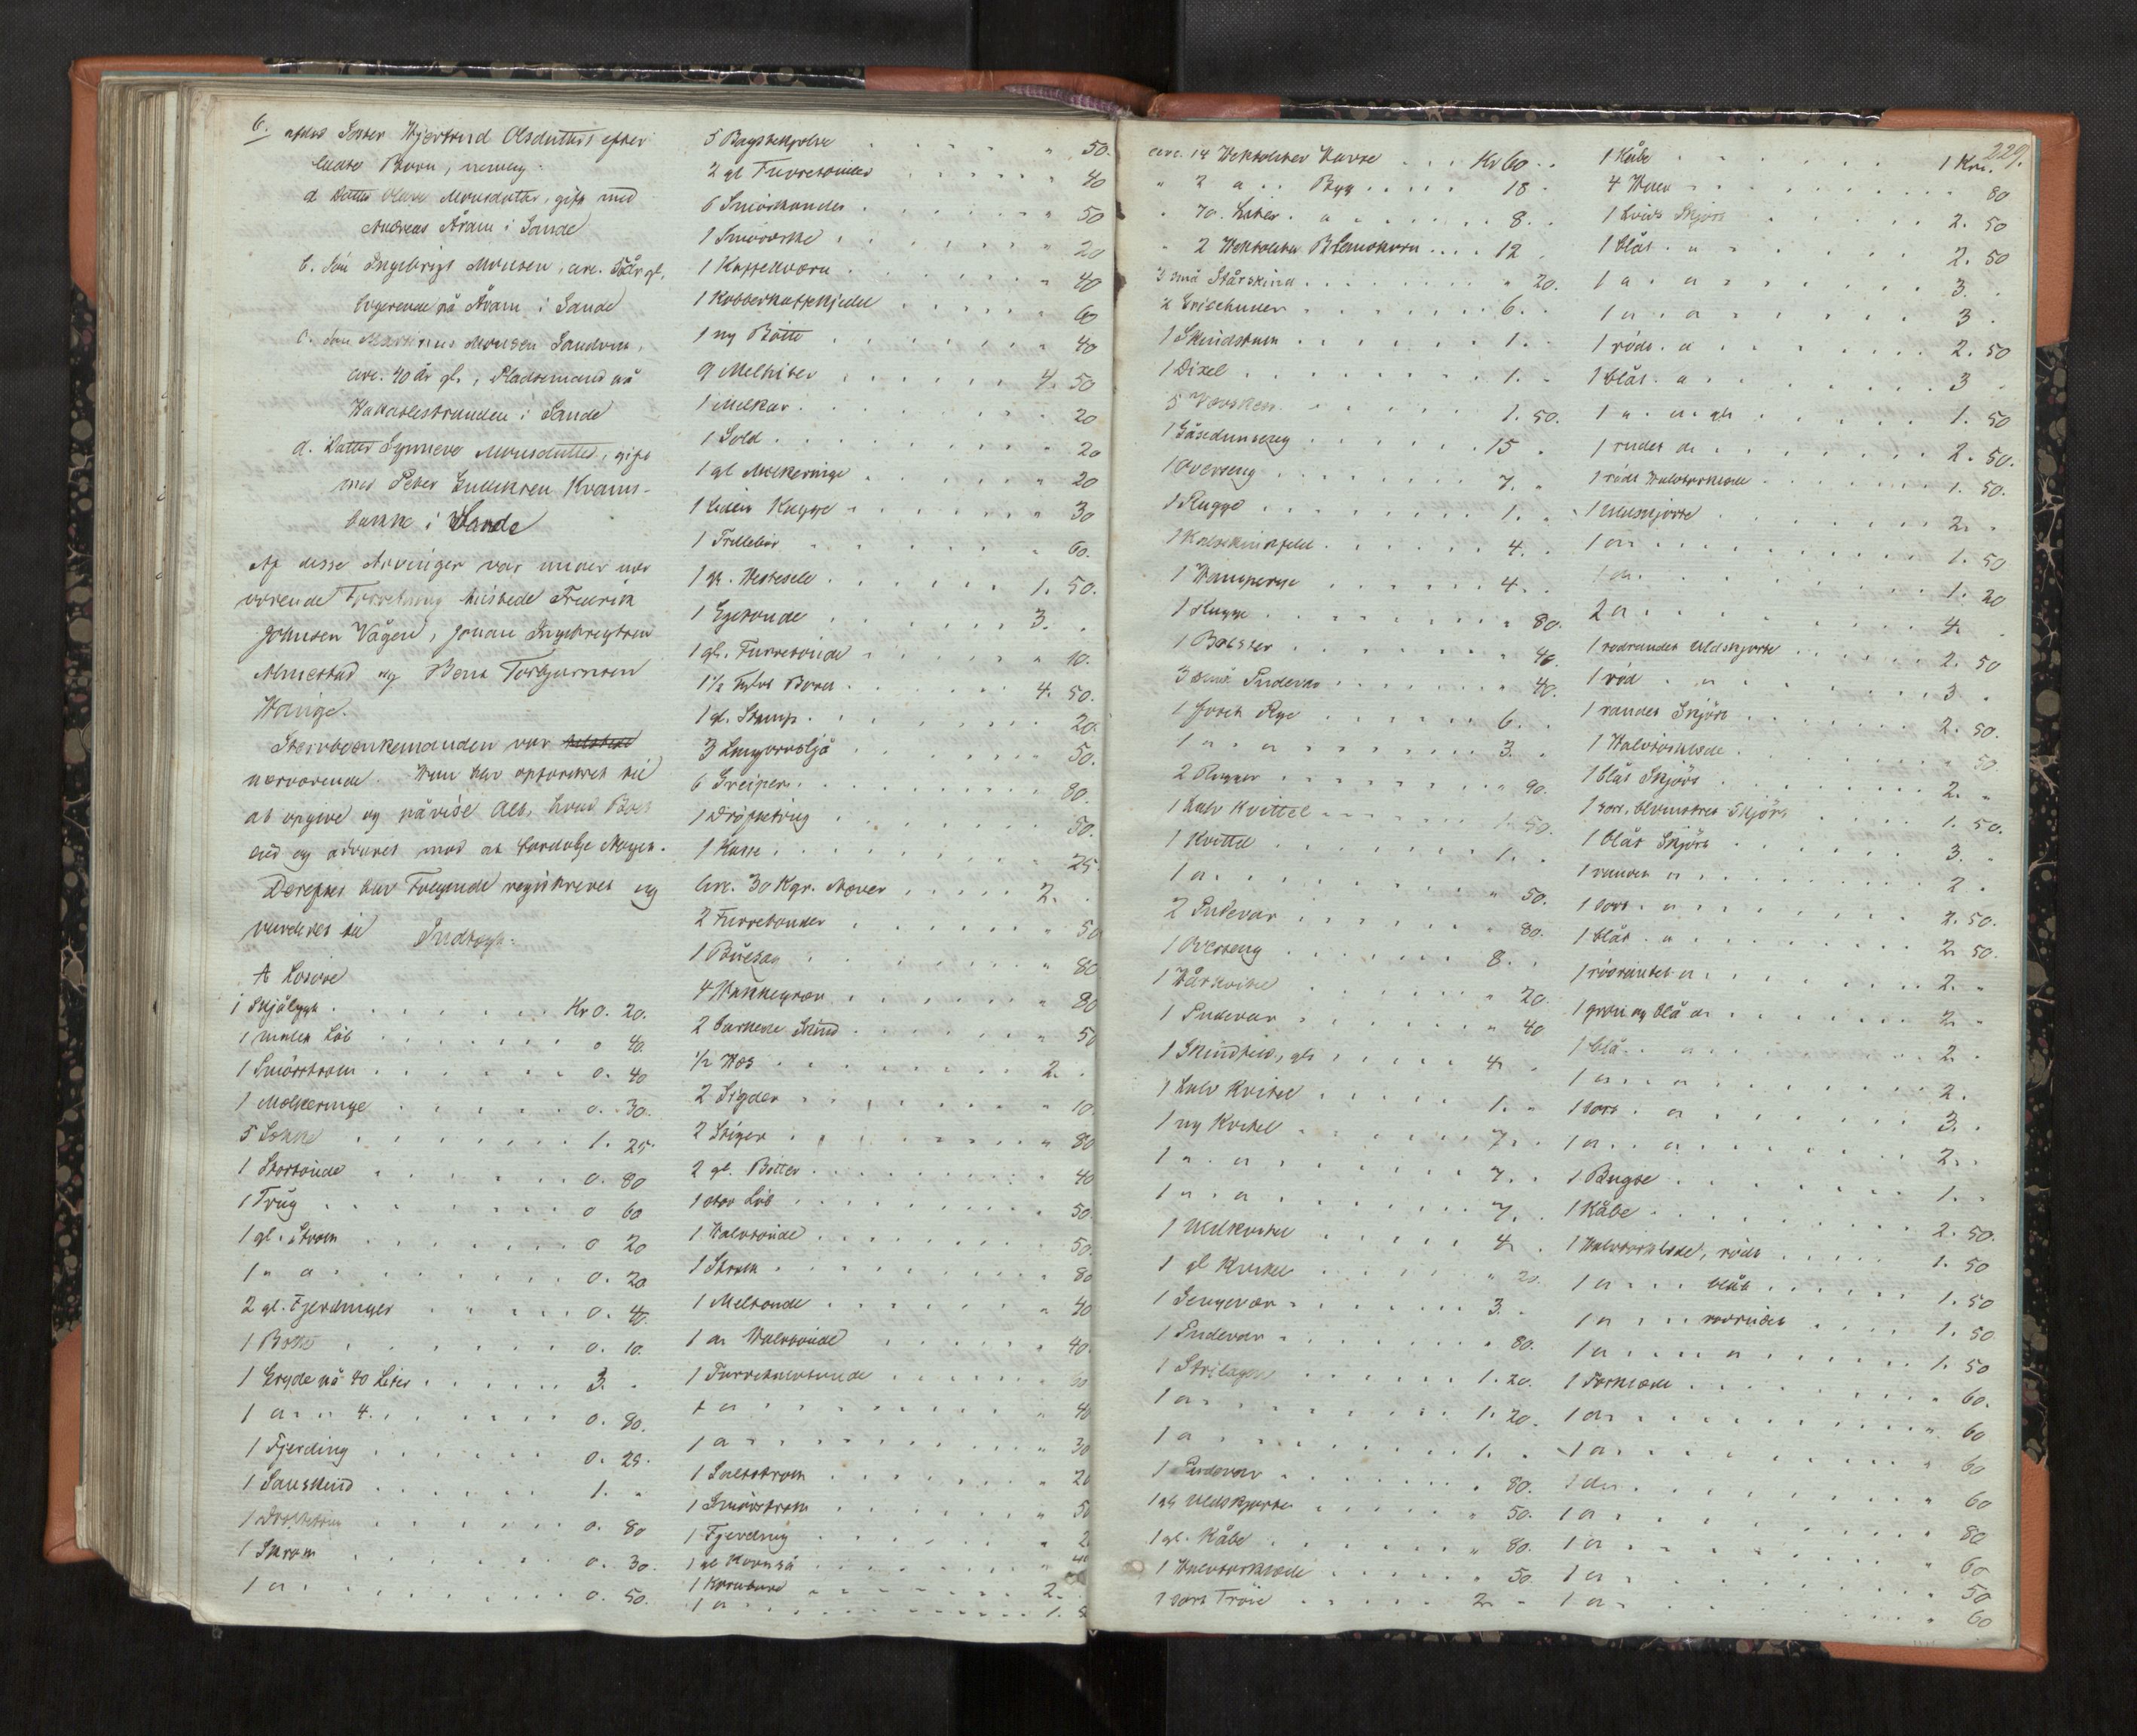 6. afdøde Søster Gjertrud Olsdatters efter
ladte Børn, nemlig:
a. Datter Olave Monsdatter, gift med
Andreas Åram i Sande
b. Søn Ingebrigt Monsen, circ. år gl.
logerende på Åram i Sande
c. Søn Martinus Monsen Sandvik,
circ. 40 år gl., Pladsemand på
i Sande
d. Datter Synneve Monsdatter, gift
med Peter Gulliksen Krams-
bakk i Sande
Af disse Arvinger var under nær
værende Forretning tilstede Fredrik
Johnsen Vågen, Johan Ingebrigtsen
Almestad og Bent Torbjørnsen
Hauge.
Stervboenkemanden var
nærværende. Han blev opfordret til
at opgive og påvise Alt, hvad Boet
eied og advaret mod at fordølge Noget.
Derefter blev Følgende registreret og
vurderet til Indtægt:
A Løsøre
1 . . . Kr 0. 20.
1 malet Løb . . . 0 40.
1 Smørstrom . . . 0. 40
1 Melkeringe . . . 0. 30.
5 Sække . . . 1. 25
1 Stortønde . . . 0. 80
1 Trug . . . 0 60
1 gl. Strom . . . 0 20
1 " a . . . 0. 20
2 gl. Fjerdinger . . . 0. 40.
1 Bøtte . . . 0. 10.
1 Gryde på 40 Liter . . . 3. "
1 a " " 4. . . . 0. 80.
1 Fjerding . . . 0. 25.
1 Saueskind . . . 1. "
1 . . . 0. 80
1 Strom . . . 0. 30.
1 a . . . 0. 50.
5 . . . " 50.
2 gl Turretønder . . . 40
6 Smørspander . . . 50
1 Smørøske . . . " 20
1 Kaffekværn . . . " 40
1 Kobberkaffekjedel . . . 60
1 ny Bøtte . . . " 40
9 Melbiter . . . 4. 50
1 Melkar . . . 20
1 Sold . . . " 20
1 gl Melkeringe . . . " 20
1 liden Kagge . . . " 30
1 Trillebør . . . " 60.
1 gl. Hestesele . . . 1. 50.
1 Egetønde . . . 3. .
1 gl. Turretønde . . . " 10.
1½ Tylvt Bord . . . 4. 50.
1 gl. Stamp . . . 20.
3 Langorvsljå . . . 50.
6 Greiper . . . 80.
1 Drøftetrug . . . 50.
1 Kasse . . . 25
circ. 30 Kgr. Never . . . 2. .
2 Turretønder . . . " 50
1 Buesag . . . " 80
4 . . . " 80
2 barkede Skind . . . " 50
½ Hus . . . 2. .
2 Sigder . . . " 10
2 Stiger . . . " 80
2 gl. Bøtter . . . 40
1 stor Løb . . . " 50
1 Halvtønde . . . 50.
1 Strom . . . 80
1 Meltønde . . . " 40
1 a Halvtønde . . . 40.
1 Turrehalvtønde . . .
1 a . . . " 40
1 a . . . " 30
1 Saltstrom . . . " 20
1 Smørstrom . . . " 50
1 Fjerding . . . "
1 gl Kornså . . . "
1 . . . 2.
1 a . . . 1.
229.
circ. 14 Hektoliter Havre . . . Kr 60. .
" 2 a . . Byg . . . 18 .
" 70 Liter . a . . . 8. .
" 2 Hektoliter Blandkorn . . . 12 .
3 små Stårskind . . . " 20.
2 Grisehuder . . . 6. .
1 Skindstak . . . 1. .
1 Dixel . . . 1. .
5 Vævskeer . . . 1. 50.
1 Gåsedunseng . . . 15 .
1 Overseng . . . 7. "
1 Rugge . . . 1. "
1 Kalvskindfeld . . . 4. .
1 . . . 4. .
1 Rugge . . . " 80.
1 Bolster . . . " 40.
3 små Pudevar . . . " 40.
1 Rye . . . 6. .
1 " a . . . 3. .
2 Rugger . . . " 90.
1 halv Kvittel . . . 1. 50.
1 Kvittel . . . 1. .
1 a . . . " 50.
2 Pudevar . . . " 80.
1 Overseng . . . 8. .
1 . . . " 20.
1 Pudevar . . . " 40
1 Skindfeld, gl . . . 4. .
1 halv Kvitel . . . 1. "
1 ny Kvitel . . . 7. .
1 " a . . . 7. .
1 " a . . . 7. .
1 Uldkvitel . . . 4. .
1 gl Kvitel . . . " 20.
1 Sengevar . . . 3. .
1 Pudevar . . . " 80.
1 Strilagen . . . 1. 20.
1 a . . . 1. 20.
1 a . . . 1. .
1 Pudevar . . . " 80.
1 gl Uldskjorte . . . " 50.
1 gl. Kåbe . . . " 80.
1 Halvtørklæde . . . " 50.
1 sort Trøie . . . 2. "
1 Kåbe . . . 1 Kr. .
4 Huer . . . " 80
1 hvidt Skjørt . . . 2. 50
1 blåt . a . . . 2. 50
1 a . a . . . 3. .
1 a . a . . . 3 .
1 rødt . a . . . 2. 50
1 blåt . a . . . 3 .
1 a . a . gl . . . 1. 50
1 rudet do . . . 2. 50.
1 rødt Halvtørklæde . . . 1. 50.
1 Uldskjorte . . . 2. .
1 a . . . 1. 50
1 a . . . 1. 20
2 a . . . 4. .
1 rødrandet Uldskjorte . . . 2. 50
1 rød . a . . . 3 .
1 randet Skjørt . . . 2. 50.
1 Halvtørklæde . . . 50.
1 blåt Skjørt . . . 2. "
1 sort, blomstret Skjørt . . . 1. 50.
1 blåt Skjørt . . . 3. "
1 randet a . . . 2 .
1 sort . a . . . 2. 50.
1 blåt . a . . . 2. 50.
1 rødrandet a . . . 2. "
1 grøn og blå a . . . 2. "
1 blå . a . . . 2. .
1 a . a . . . 2. .
1 sort . a . . . 3. .
1 a . a . . . 2. .
1 Bugse . . . 1. .
1 Kåbe . . . 2. 50.
1 Halvtørklæde, rødt . . . 1. 50
1 a . . . blåt . . . 1. 50
1 a . . . rødrudet . . . 1. 50
1 a . . . a . . . 1. 50
1 Forklæde . . . 60.
1 a . . . " 60
1 a . . . " 60
1 do . . . " 60
1 a . . . " 80
1 a . . . " 60
1 a . . . " 50
1 a . . . " 60